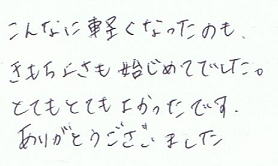 こんなに軽くなったのも、
きもちよさも始じめてでした。
とてもとてもよかったです.
ありがとうございました